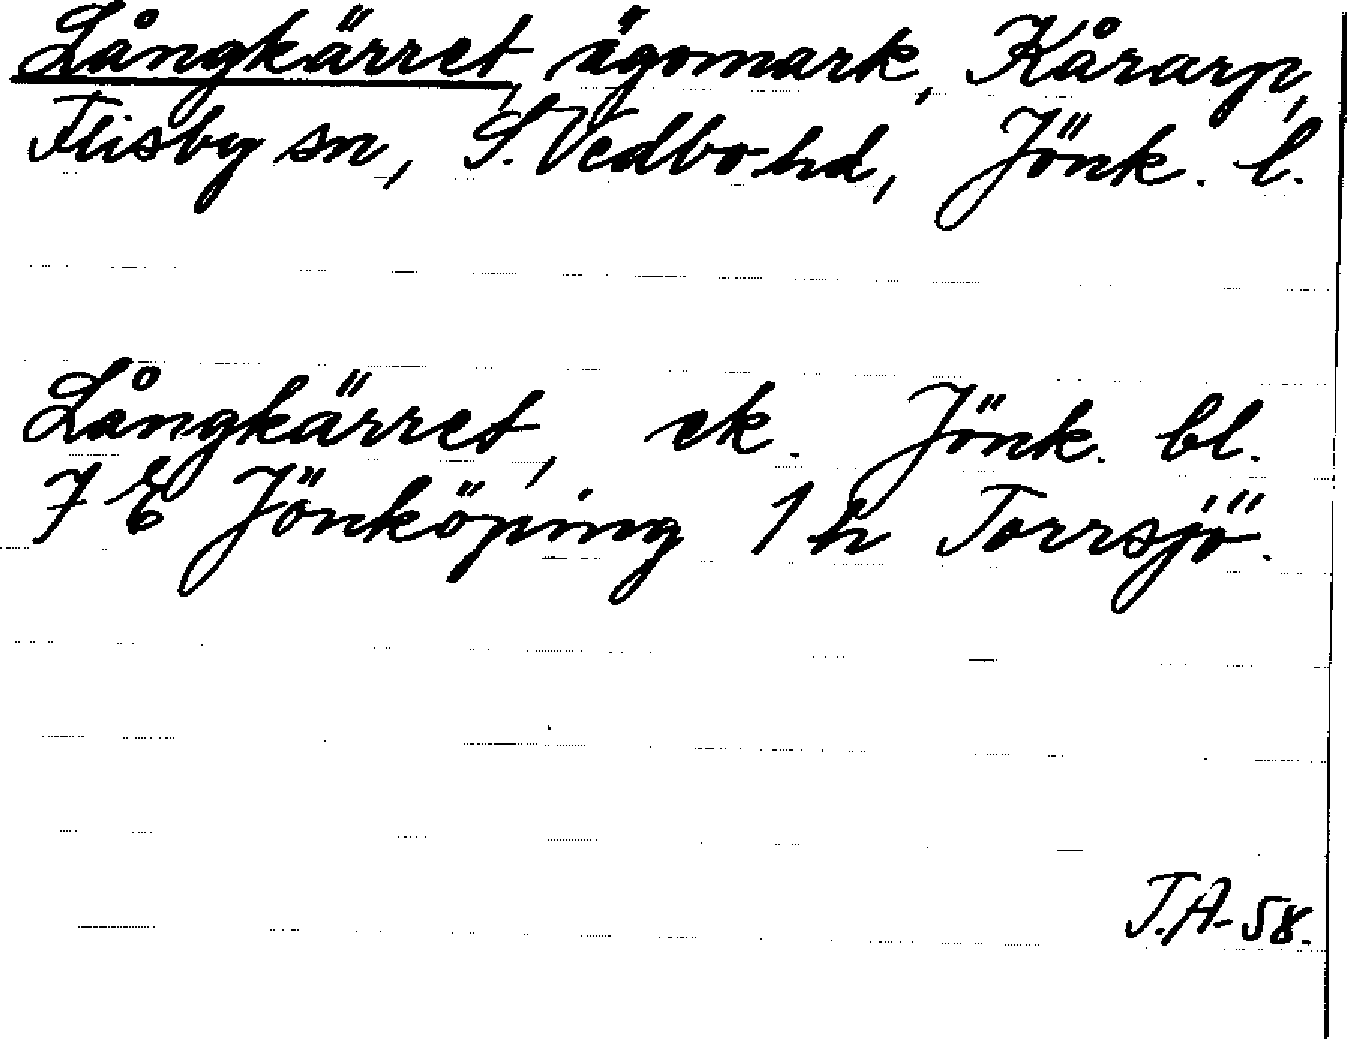 Långkärret, ägomark, Kårarp,
Flisby sn, S. Vedbo hd, Jönk. l.
Långkärret, ek. Jönk. bl.
7 E Jönköping 1 h Torrsjö.
T.A-58.